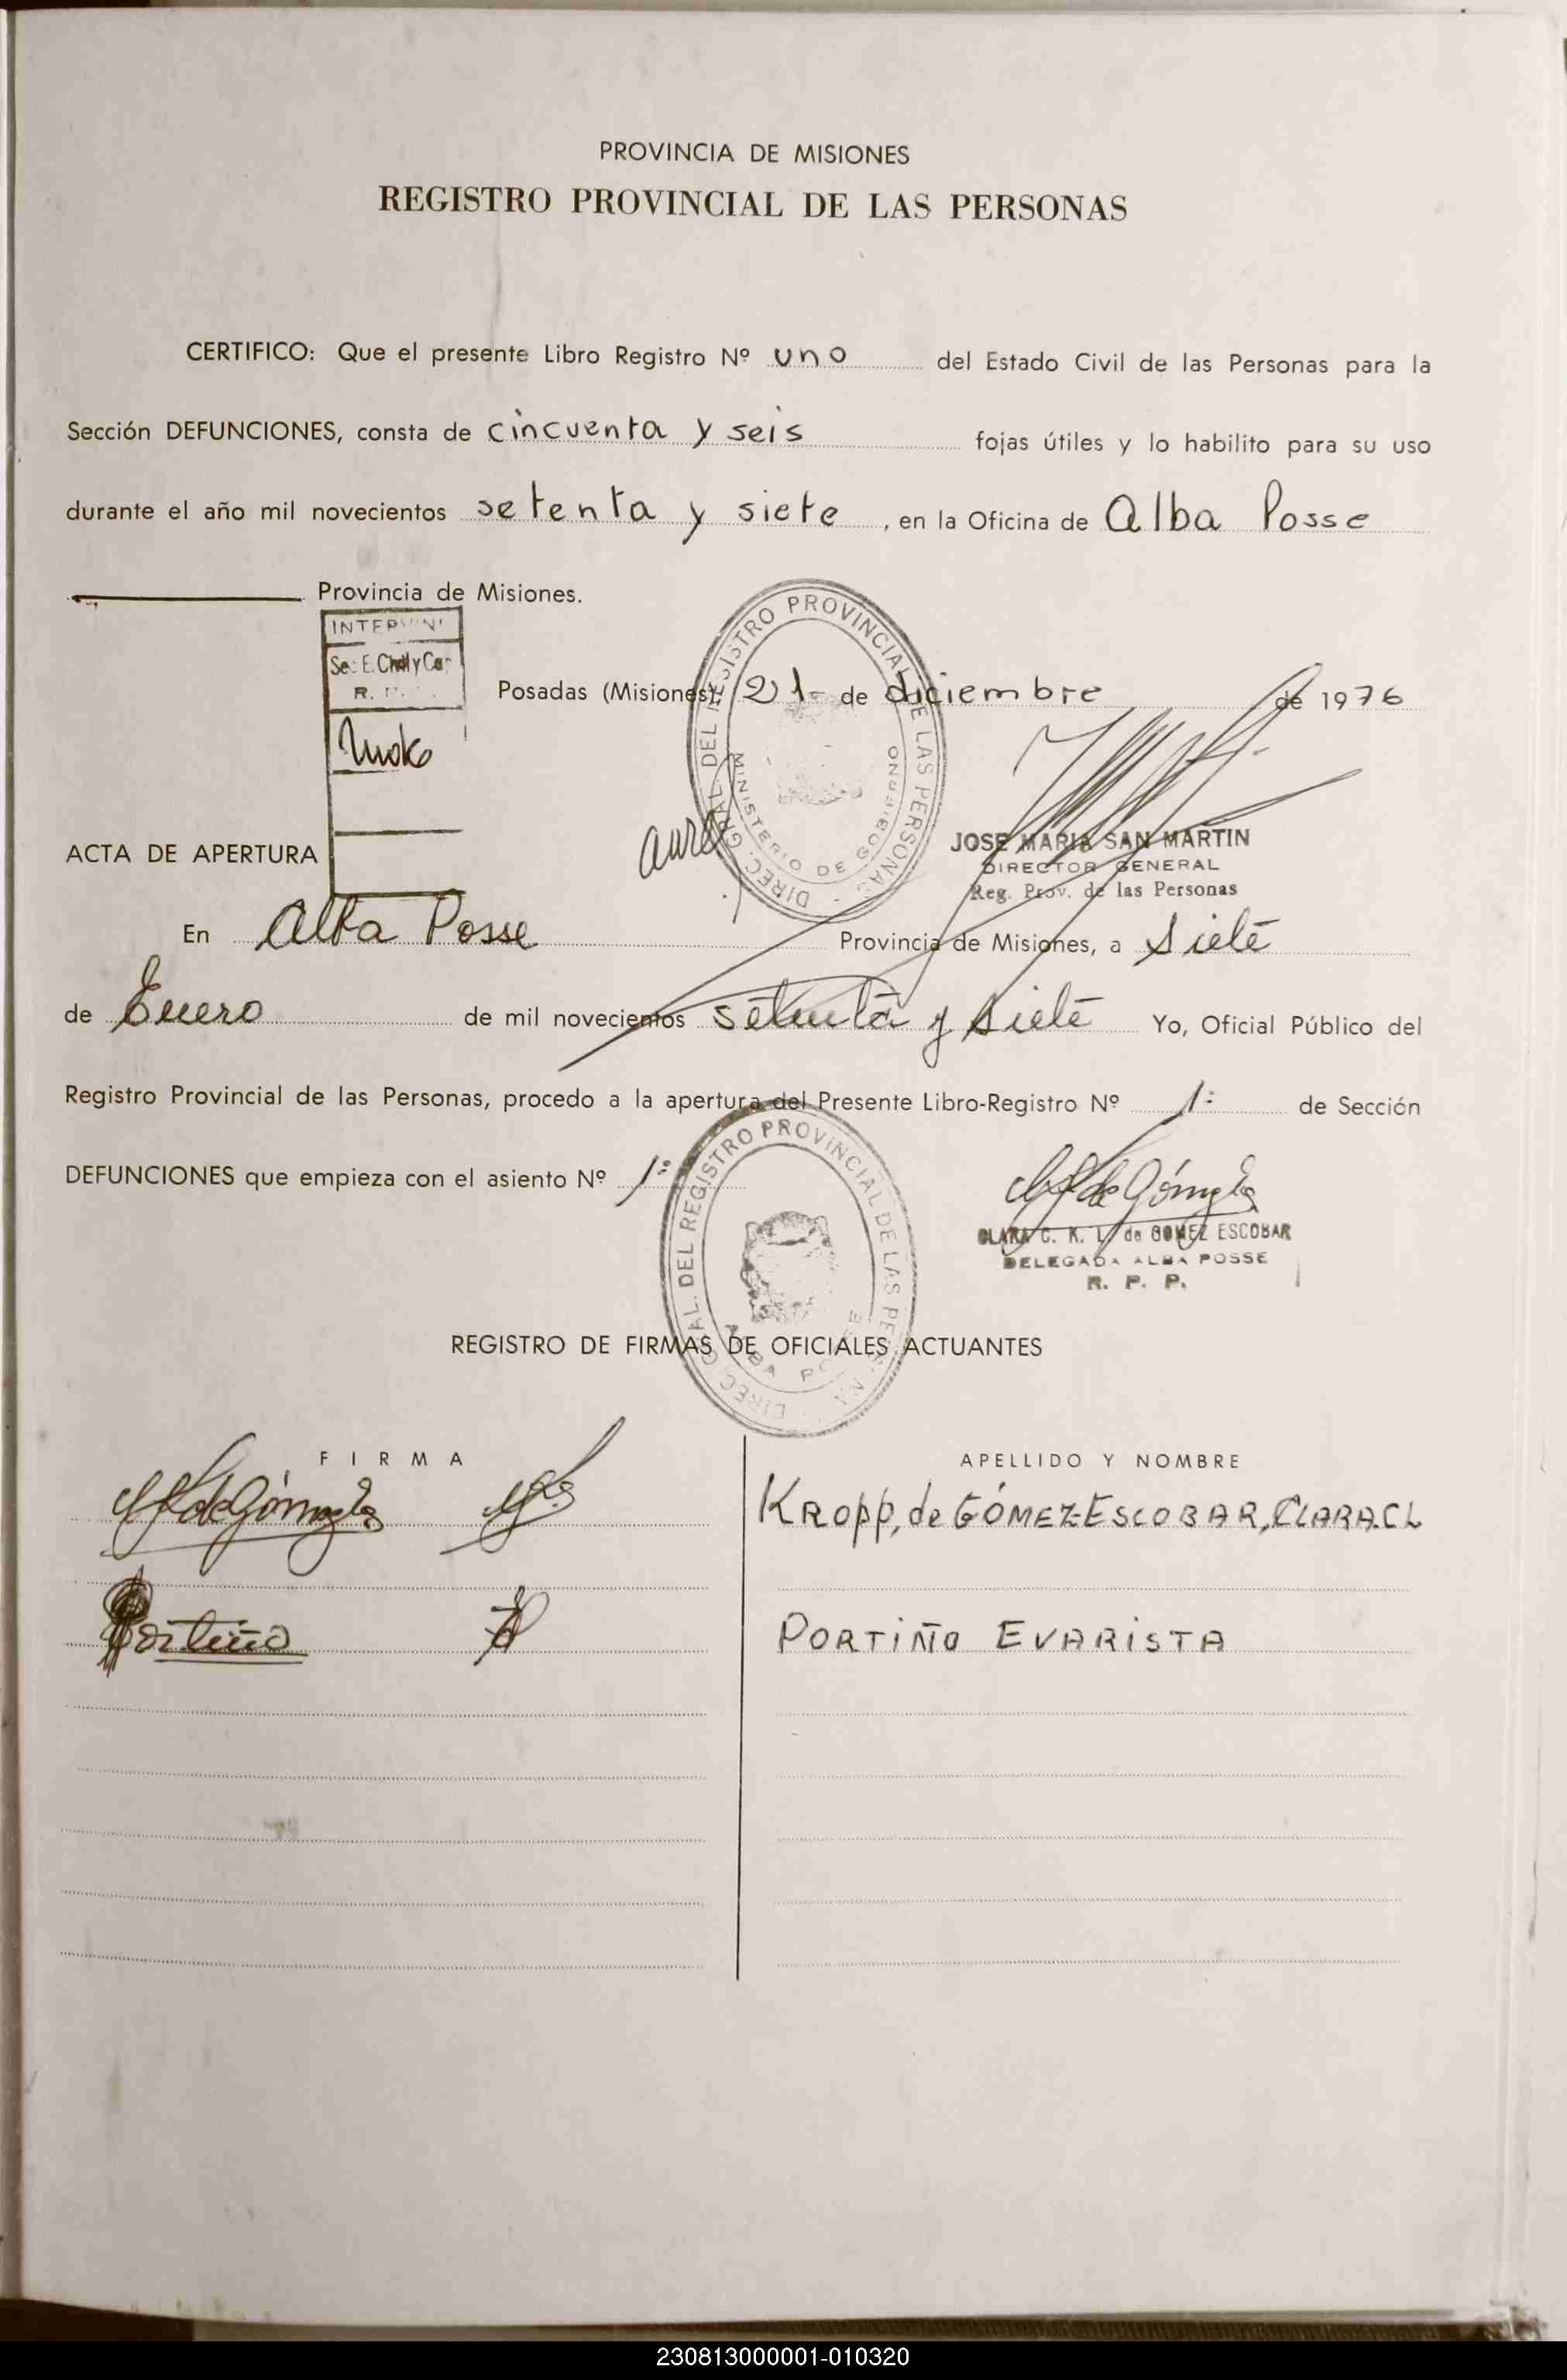 PROVINCIA DE MISIONES
REGISTRO PROVINCIAL DE LAS PERSONAS
CERTIFICO: Que el presente Libro Registro Nº uno del Estado Civil de las Personas para la
Sección DEFUNCIONES, consta de cincuenta y seis fojas útiles y lo habilito para su uso
durante el año mil novecientos setenta y siete, en la Oficina de Alba Posse
Provincia de Misiones.
Posadas (Misiones), 21 de diciembre de 1976
DIREC. GRAL. DEL REGISTRO PROVINCIAL DE LAS PERSONAS
MINISTERIO DE GOBIERNO
JOSE MARIA SAN MARTIN
DIRECTOR GENERAL
Reg. Prov. de las Personas
ACTA DE APERTURA
En Alba Posse Provincia de Misiones, a Siete
de Enero de mil novecientos setenta y siete Yo, Oficial Público del
Registro Provincial de las Personas, procedo a la apertura del Presente Libro-Registro Nº 1º de Sección
DEFUNCIONES que empieza con el asiento Nº 1º
DIREC. GRAL. DEL REGISTRO PROVINCIAL DE LAS PERSONAS
ALBA POSSE
CLARA C. K. L. de GOMEZ ESCOBAR
DELEGADA ALBA POSSE
R. P. P.
REGISTRO DE FIRMAS DE OFICIALES ACTUANTES
FIRMA APELLIDO Y NOMBRE
KROPP, de GÓMEZ-ESCOBAR, CLARA.CL
Portiño PORTIÑO EVARISTA
230813000001-010320